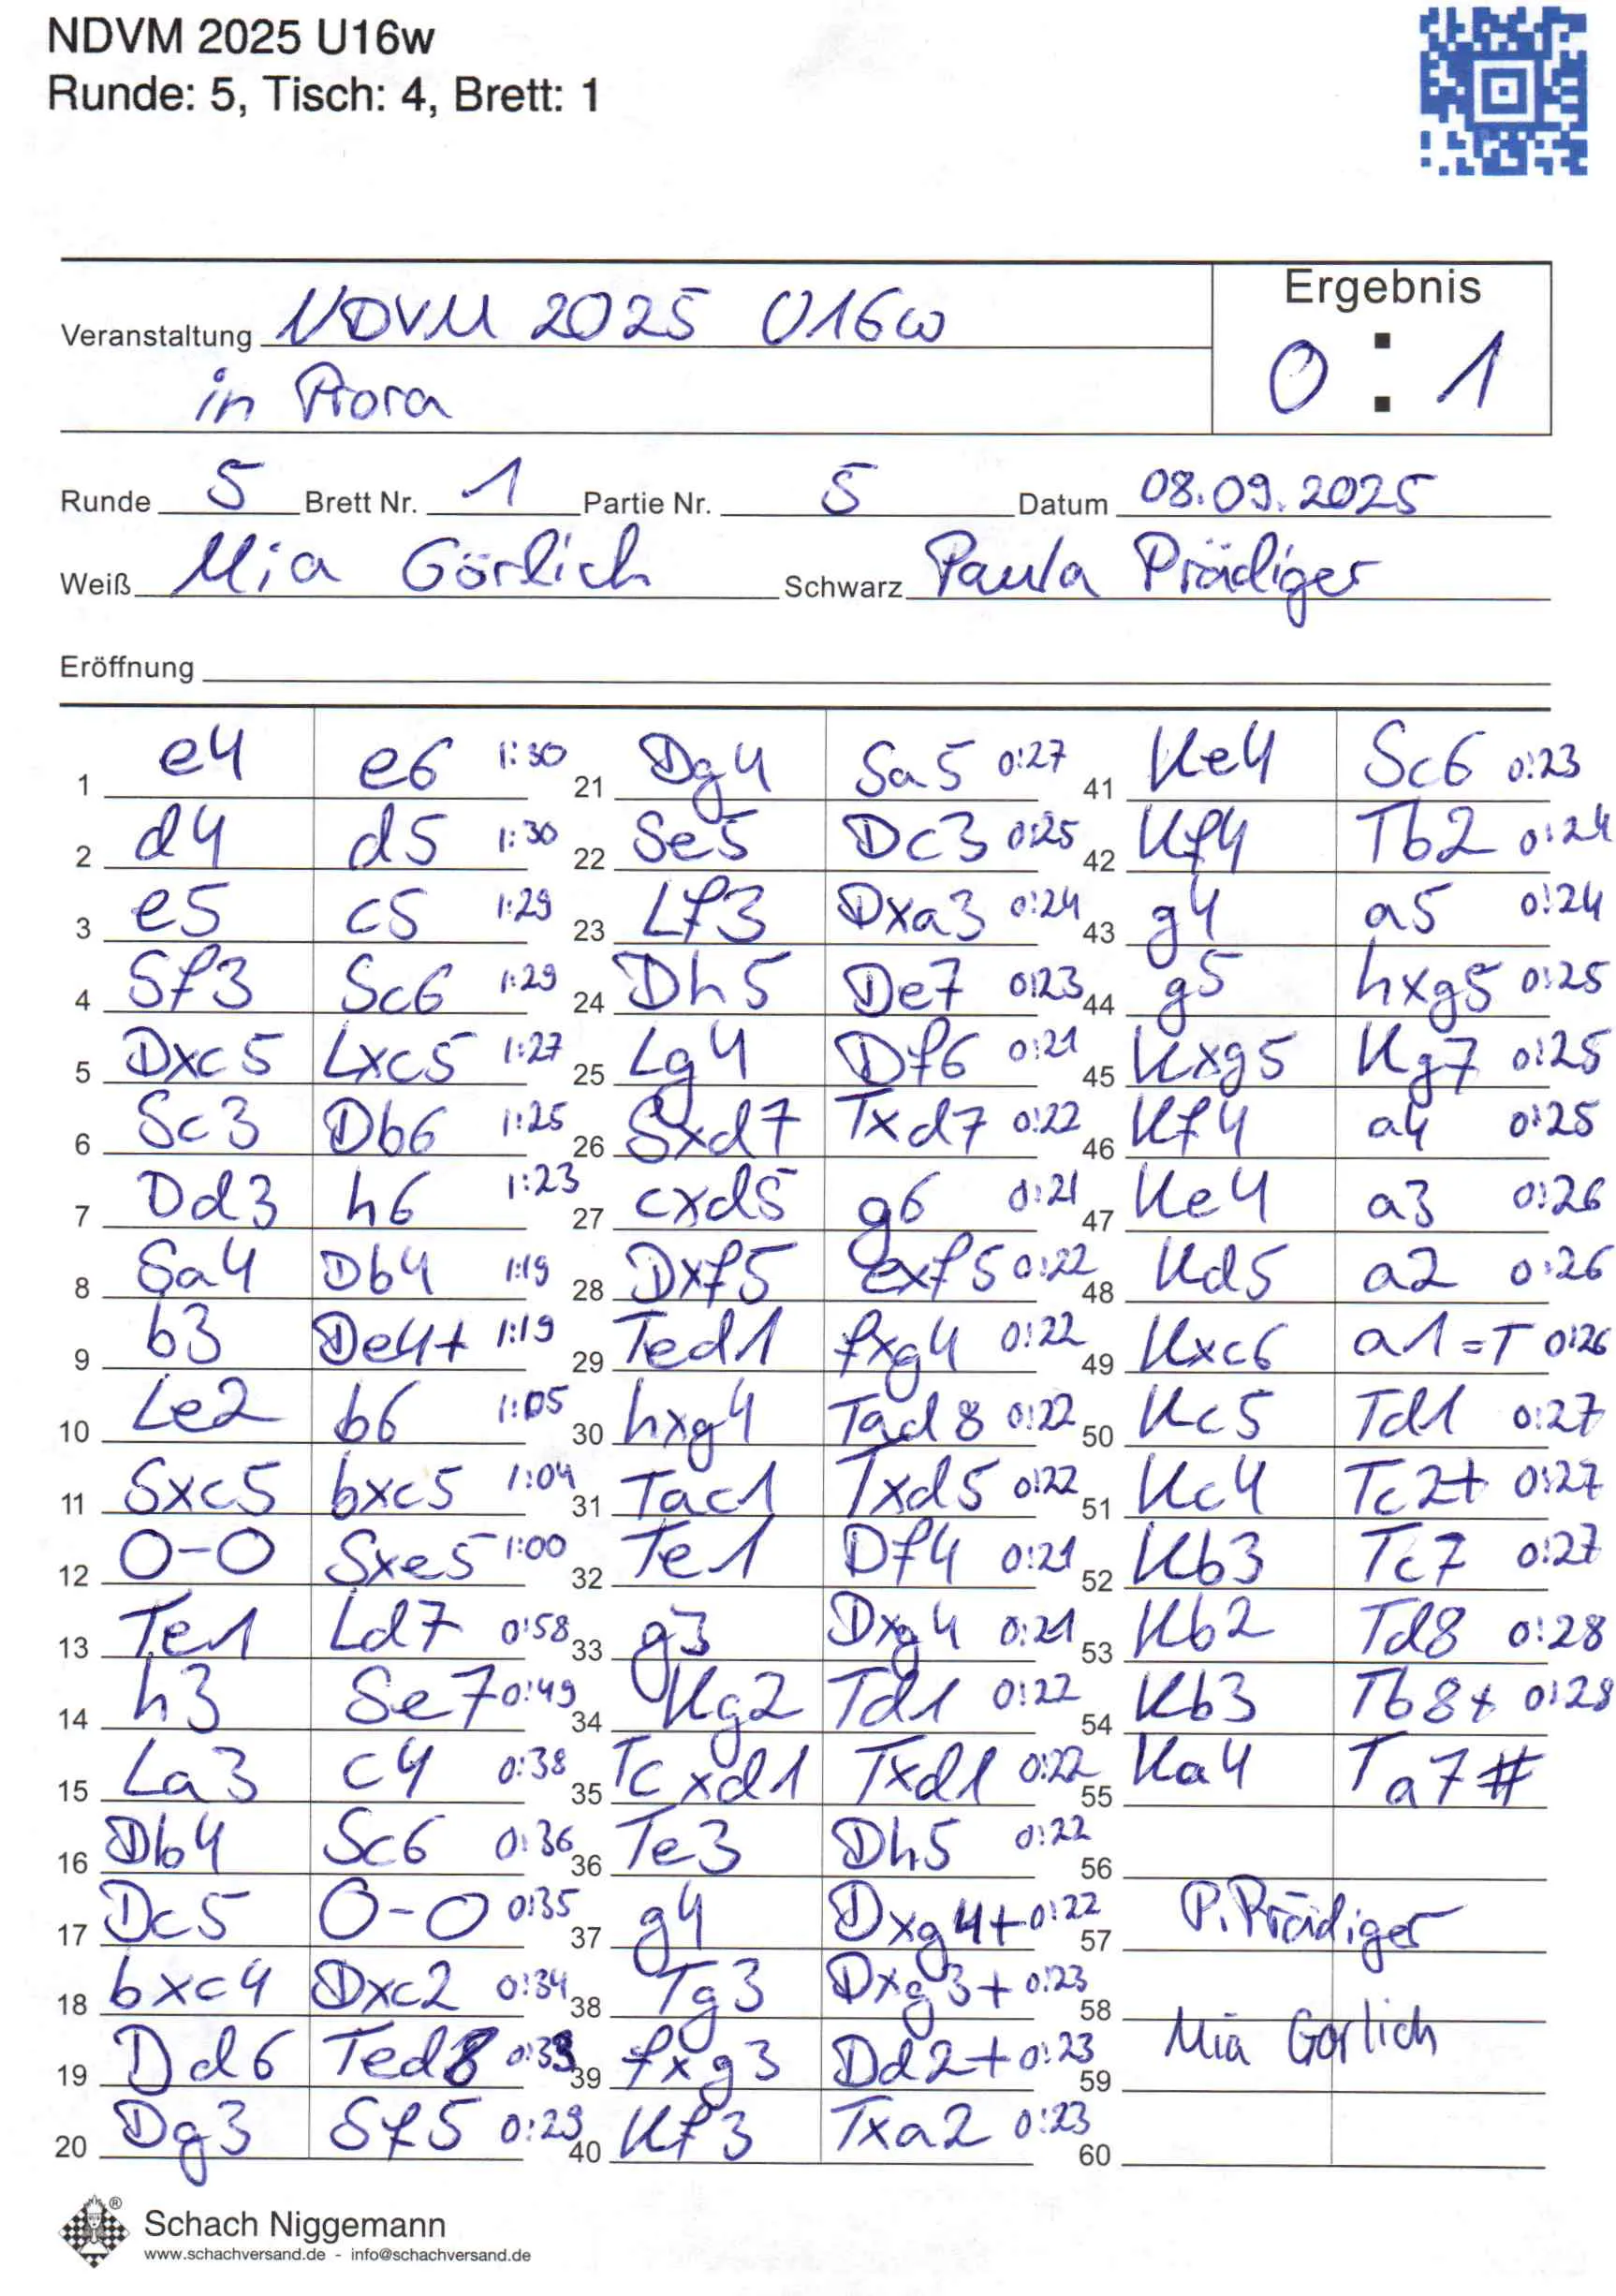 NDVM 2025 U16w
Runde: 5, Tisch: 4, Brett: 1
Ergebnis
Veranstaltung NDVM 2025 U16w
in Prora
0 : 1
Runde 5 Brett Nr. 1 Partie Nr. 5 Datum 08.09.2025
Weiß Mia Görlich Schwarz Paula Prädiger
Eröffnung
1 e4 e6 1:30
2 d4 d5 1:30
3 e5 c5 1:29
4 Sf3 Sc6 1:29
5 Dxc5 Lxc5 1:27
6 Sc3 Db6 1:25
7 Dd3 h6 1:23
8 Sa4 Db4 1:19
9 b3 De4+ 1:19
10 Le2 b6 1:05
11 Sxc5 bxc5 1:04
12 0-0 Sxe5 1:00
13 Te1 Ld7 0:58
14 h3 Se7 0:49
15 La3 c4 0:38
16 Db4 Sc6 0:36
17 Dc5 0-0 0:35
18 bxc4 Dxc2 0:34
19 Dd6 Ted8 0:33
20 Dg3 Sf5 0:29
21 Dg4 Sa5 0:27
22 Se5 Dc3 0:25
23 Lf3 Dxa3 0:24
24 Dh5 De7 0:23
25 Lg4 Df6 0:21
26 Sxd7 Txd7 0:22
27 cxd5 g6 0:21
28 Dxf5 exf5 0:22
29 Ted1 fxg4 0:22
30 hxg4 Tad8 0:22
31 Tac1 Txd5 0:22
32 Te1 Df4 0:21
33 g3 Dxg4 0:21
34 Kg2 Td1 0:22
35 Tcxd1 Txd1 0:22
36 Te3 Dh5 0:22
37 g4 Dxg4+ 0:22
38 Tg3 Dxg3+ 0:23
39 fxg3 Dd2+ 0:23
40 Kf3 Txa2 0:23
41 Ke4 Sc6 0:23
42 Kf4 Tb2 0:24
43 g4 a5 0:24
44 g5 hxg5 0:25
45 Kxg5 Kg7 0:25
46 Kf4 a4 0:25
47 Ke4 a3 0:26
48 Kd5 a2 0:26
49 Kxc6 a1=T 0:26
50 Kc5 Td1 0:27
51 Kc4 Tc2+ 0:27
52 Kb3 Tc7 0:27
53 Kb2 Td8 0:28
54 Kb3 Tb8+ 0:28
55 Ka4 Ta7#
56
57 P. Prädiger
58 Mia Görlich
59
60
® Schach Niggemann
www.schachversand.de - info@schachversand.de